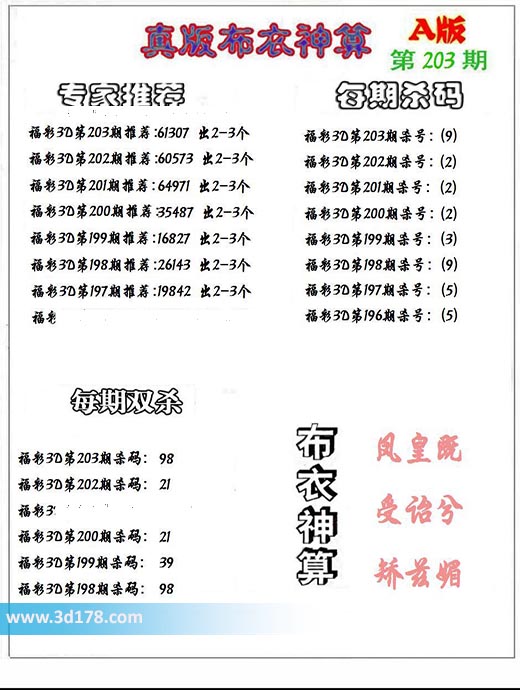 真版布衣神算
A版
第 203 期
专家推荐
福彩3D第203期推荐:61307 出2-3个
福彩3D第202期推荐:60573 出2-3个
福彩3D第201期推荐:64971 出2-3个
福彩3D第200期推荐:35487 出2-3个
福彩3D第199期推荐:16827 出2-3个
福彩3D第198期推荐:26143 出2-3个
福彩3D第197期推荐:19842 出2-3个
福彩
每期杀码
福彩3D第203期杀号: (9)
福彩3D第202期杀号: (2)
福彩3D第201期杀号: (2)
福彩3D第200期杀号: (2)
福彩3D第199期杀号: (3)
福彩3D第198期杀号: (9)
福彩3D第197期杀号: (5)
福彩3D第196期杀号: (5)
每期双杀
福彩3D第203期杀码: 98
福彩3D第202期杀码: 21
福彩3
福彩3D第200期杀码: 21
福彩3D第199期杀码: 39
福彩3D第198期杀码: 98
布衣神算
凤皇既
受诒兮
矫兹媚
www.3d178.com